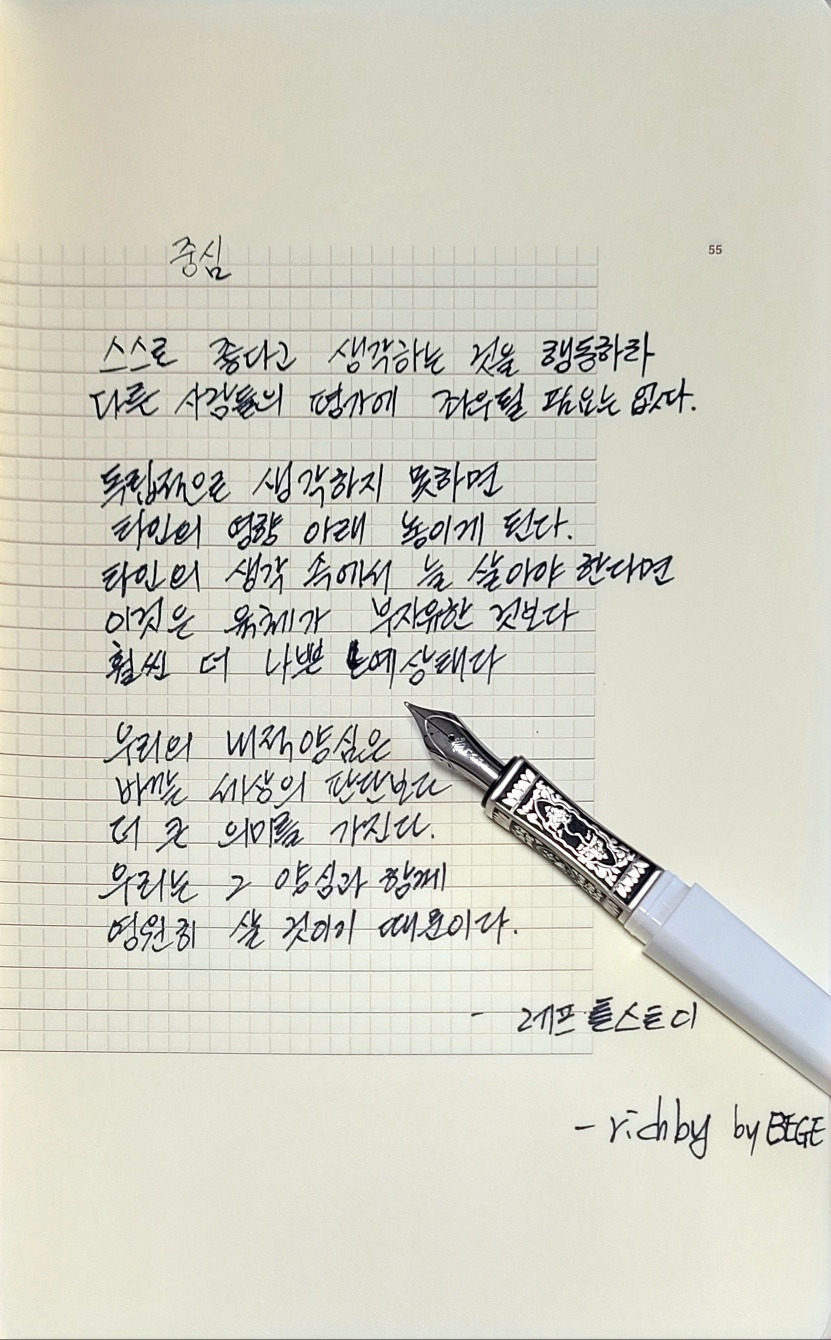 55
중심
스스로 좋다고 생각하는 것을 행동하라
다른 사람들의 평가에 좌우될 필요는 없다.
독립적으로 생각하지 못하면
타인의 영향 아래 놓이게 된다.
타인의 생각 속에서 늘 살아야 한다면
이것은 육체가 부자유한 것보다
훨씬 더 나쁜 노예상태다
우리의 내적 양심은
바깥 세상의 판단보다
더 큰 의미를 가진다.
우리는 그 양심과 함께
영원히 살 것이기 때문이다.
- 레프 톨스토이
- richby by BEGE